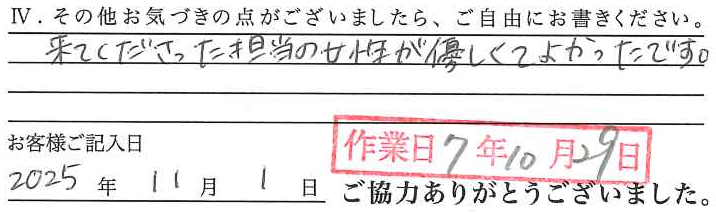 Ⅳ．その他お気づきの点がございましたら、ご自由にお書きください。
来てくださった担当の女性が優しくてよかったです。
お客様ご記入日
作業日7年10月29日
2025年11月1日
ご協力ありがとうございました。